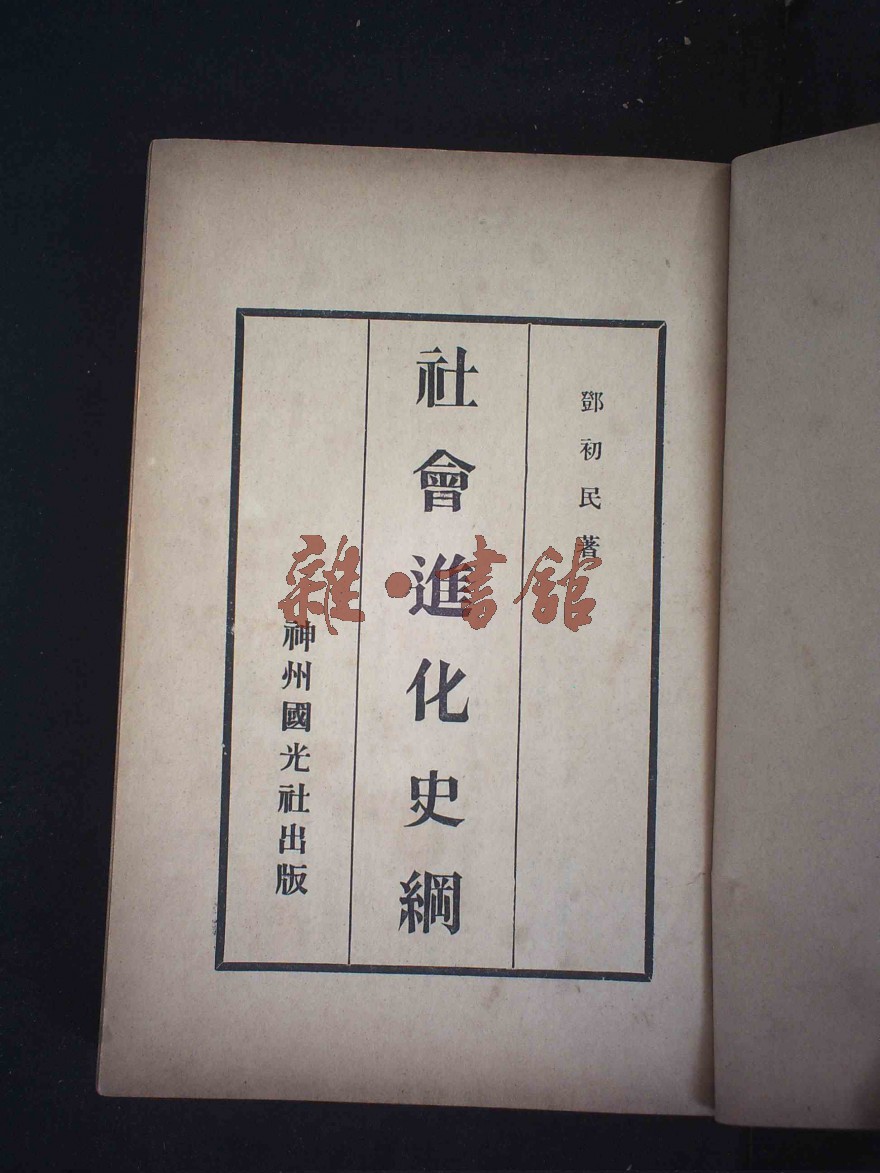 鄧初民著
社會進化史綱
神州國光社出版
雜·書館